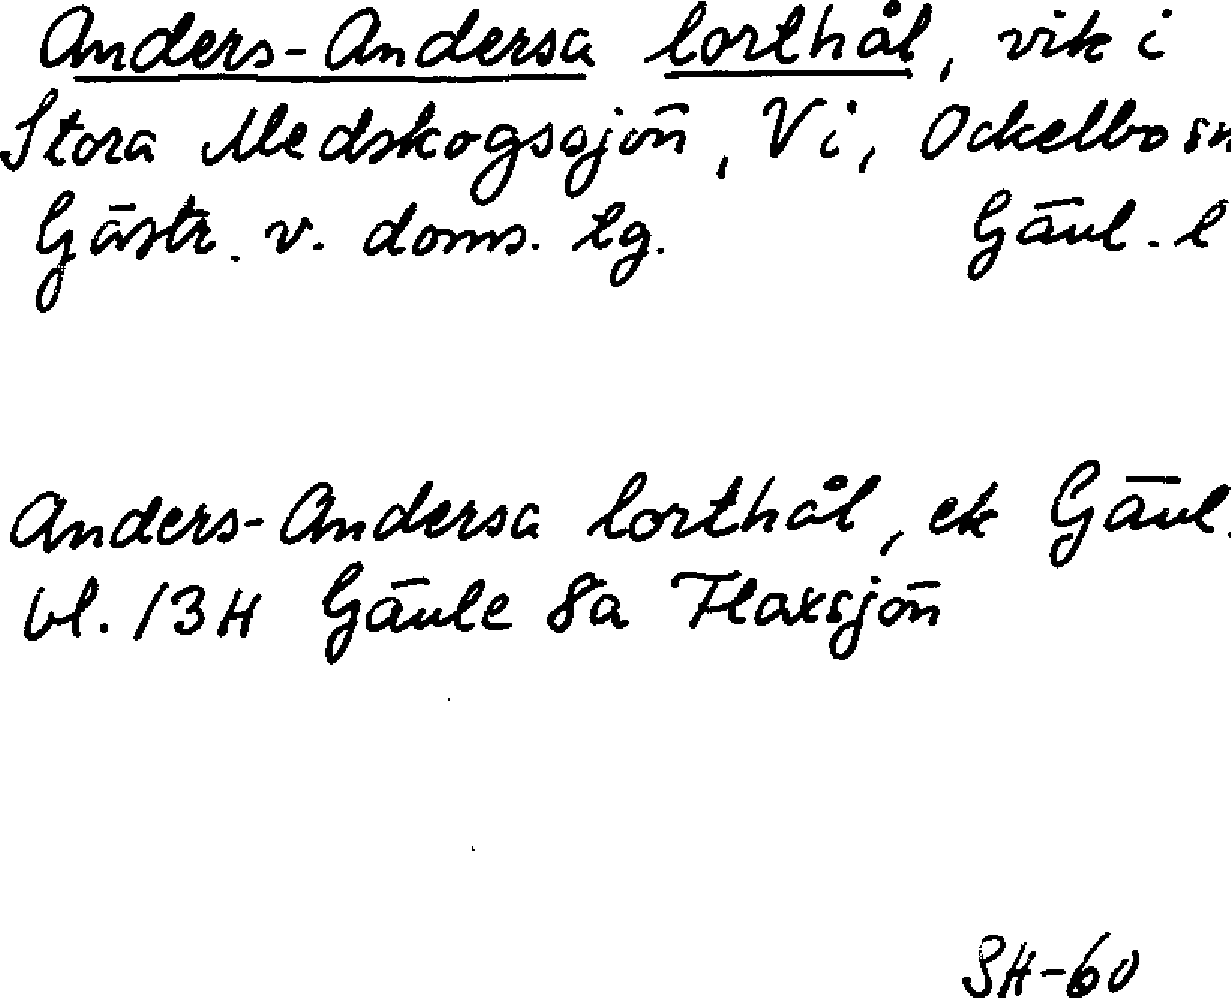 Anders-Andersa lorthål, vik i
Stora Medskogssjön, Vi, Ockelbo sn
Gästr. v. doms. lg. Gävl. l
Anders-Andersa lorthål, ek Gävl.
bl. 13H Gävle 8a Flaxsjön
SH-60